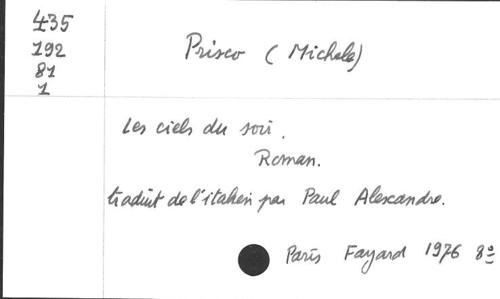 435
192
81
1
Prisco (Michele)
Les ciels du soir.
Roman.
traduit de l'italien par Paul Alexandre.
Paris Fayard 1976 8º